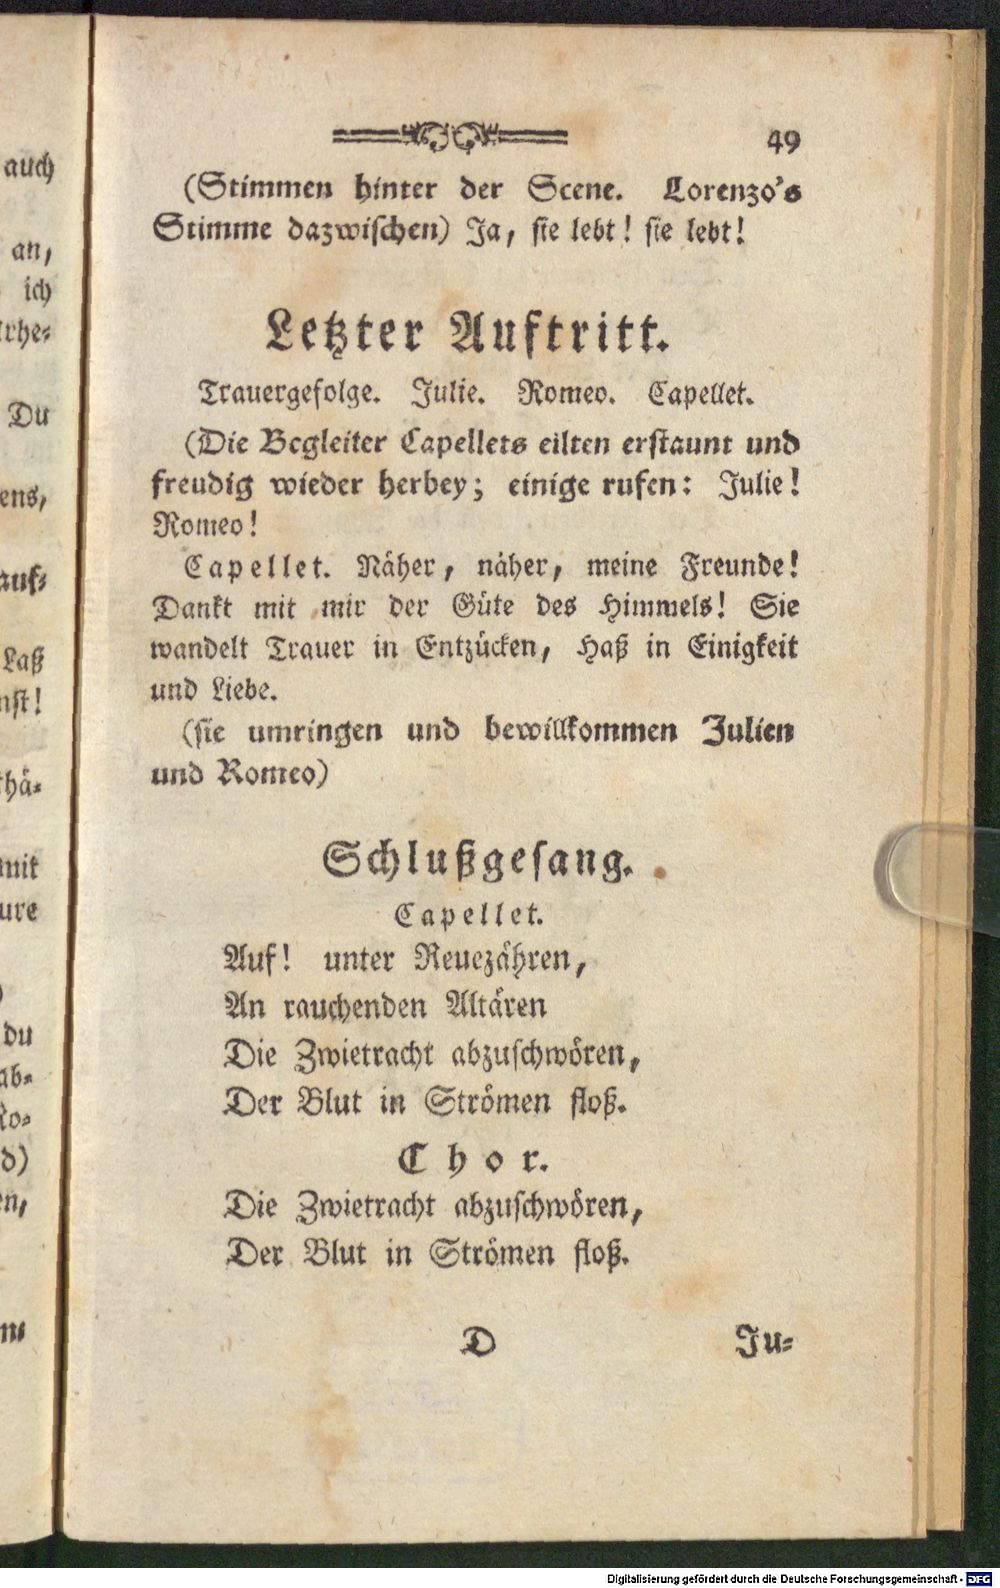 auch
an,
ich
Du
ens,
auf-
Laß
nst!
thä-
mit
ure
du
ab-
Ro-
d)
en,
49
(Stimmen hinter der Scene. Lorenzo's
Stimme dazwischen) Ja, sie lebt! sie lebt!
Letzter Auftritt.
Trauergefolge. Julie. Romeo. Capellet.
(Die Begleiter Capellets eilten erstaunt und
freudig wieder herbey; einige rufen: Julie!
Romeo!
Capellet. Näher, näher, meine Freunde!
Dankt mit mir der Güte des Himmels! Sie
wandelt Trauer in Entzücken, Haß in Einigkeit
und Liebe.
(sie umringen und bewillkommen Julien
und Romeo)
Schlußgesang.
Capellet.
Auf! unter Reuezähren,
An rauchenden Altären
Die Zwietracht abzuschwören,
Der Blut in Strömen floß.
Chor.
Die Zwietracht abzuschwören,
Der Blut in Strömen floß.
D Ju-
Digitalisierung gefördert durch die Deutsche Forschungsgemeinschaft - DFG